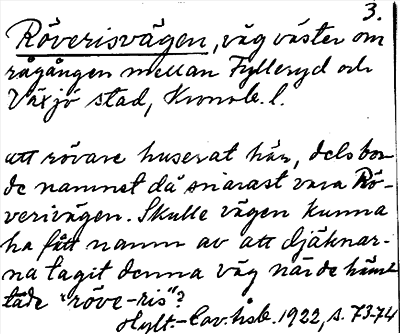 3.
Röverisvägen, väg väster om
rågången mellan Fylleryd och
Växjö stad, Kronob. l.
att rövare huserat här, dels bor-
de namnet då snarast vara Rö-
verivägen. Skulle vägen kunna
ha fått namn av att djäknar-
na tagit denna väg när de häm-
tade "röve-ris"?
Hylt.-Cav. hsb. 1922, s. 73-74